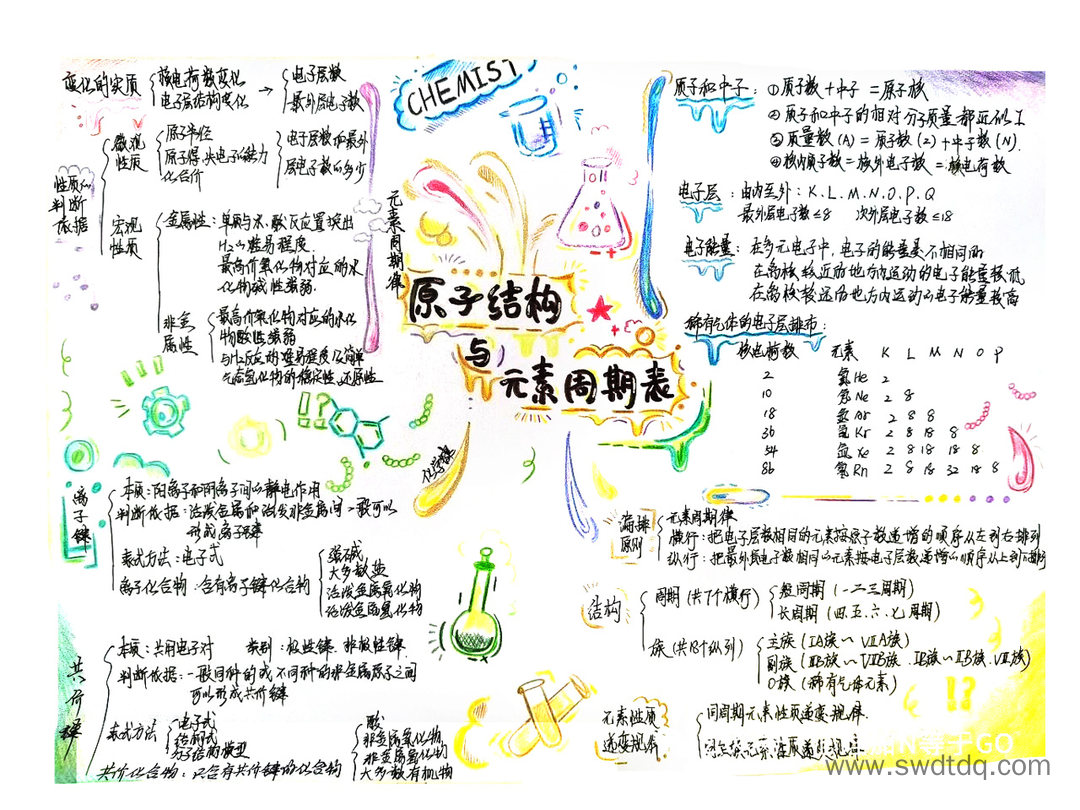 CHEMIST
原子结构
与
元素周期表
元素周期律
变化的实质
核电荷数变化
电子层结构变化
→
电子层数
最外层电子数
性质的
判断
依据
微观
性质
原子半径
原子得、失电子的能力
化合价
电子层数和最外
层电子数的多少
宏观
性质
金属性：单质与水、酸反应置换出
H₂的难易程度.
最高价氧化物对应的水
化物碱性强弱.
非金
属性
最高价氧化物对应的水化
物酸性强弱
与H₂反应的难易程度
气态氢化物的稳定性、还原性
化学键
离子键
本质：阳离子和阴离子间的静电作用
判断依据：活泼金属和活泼非金属间一般可以
形成离子键
表式方法：电子式
离子化合物：含有离子键化合物
强碱
大多数盐
活泼金属氧化物
活泼金属氢化物
共价键
本质：共用电子对 类别：极性键、非极性键.
判断依据：一般同种的或不同种的非金属原子之间
可以形成共价键
表式方法
电子式
结构式
分子结构模型
共价化合物：只含有共价键的化合物
酸
非金属氧化物
非金属氢化物
大多数有机物
质子和中子：①质子数+中子=原子核
②质子和中子的相对分子质量都近似1
③质量数(A)=质子数(Z)+中子数(N).
④核内质子数=核外电子数=核电荷数
电子层：由内至外：K.L.M.N.O.P.Q
最外层电子数≤8 次外层电子数≤18
电子能量：在多元电子中，电子的能量是不相同的
在离核较近的地方内运动的电子能量较低
在离核较远的地方内运动的电子能量较高
稀有气体的电子层排布：
核电荷数 元素 K L M N O P
2 氦He 2
10 氖Ne 2 8
18 氩Ar 2 8 8
36 氪Kr 2 8 18 8
54 氙Xe 2 8 18 18 8
86 氡Rn 2 8 18 32 18 8
编排
原则
元素周期律
横行：把电子层数相同的元素按原子数递增的顺序从左到右排列
纵行：把最外层电子数相同的元素按电子层数递增的顺序从上到下排列
结构
周期（共7个横行）
短周期（一二三周期）
长周期（四、五、六、七周期）
族（共18个纵列）
主族（ⅠA族~ⅦA族）
副族（ⅢB族~ⅦB族、ⅠB族~ⅡB族、Ⅷ族）
0族（稀有气体元素）
元素性质
递变规律
同周期元素性质递变规律.
同主族元素性质递变规律
N等于GO
www.swdtdq.com